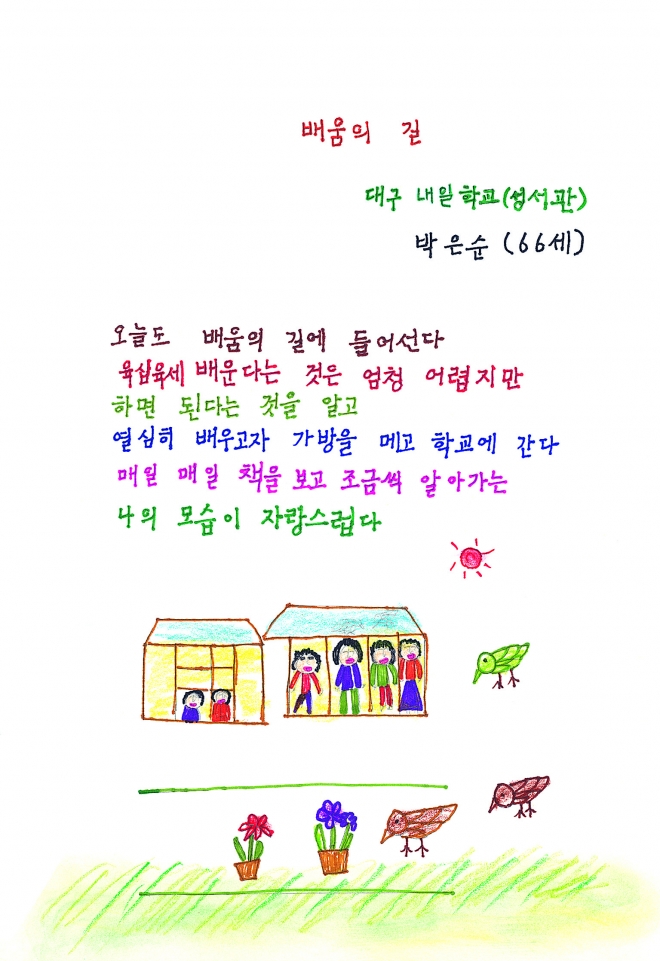 배움의 길
대구 내일학교(성서관)
박은순 (66세)
오늘도 배움의 길에 들어선다
육십육세 배운다는 것은 엄청 어렵지만
하면 된다는 것을 알고
열심히 배우고자 가방을 메고 학교에 간다
매일 매일 책을 보고 조금씩 알아가는
나의 모습이 자랑스럽다